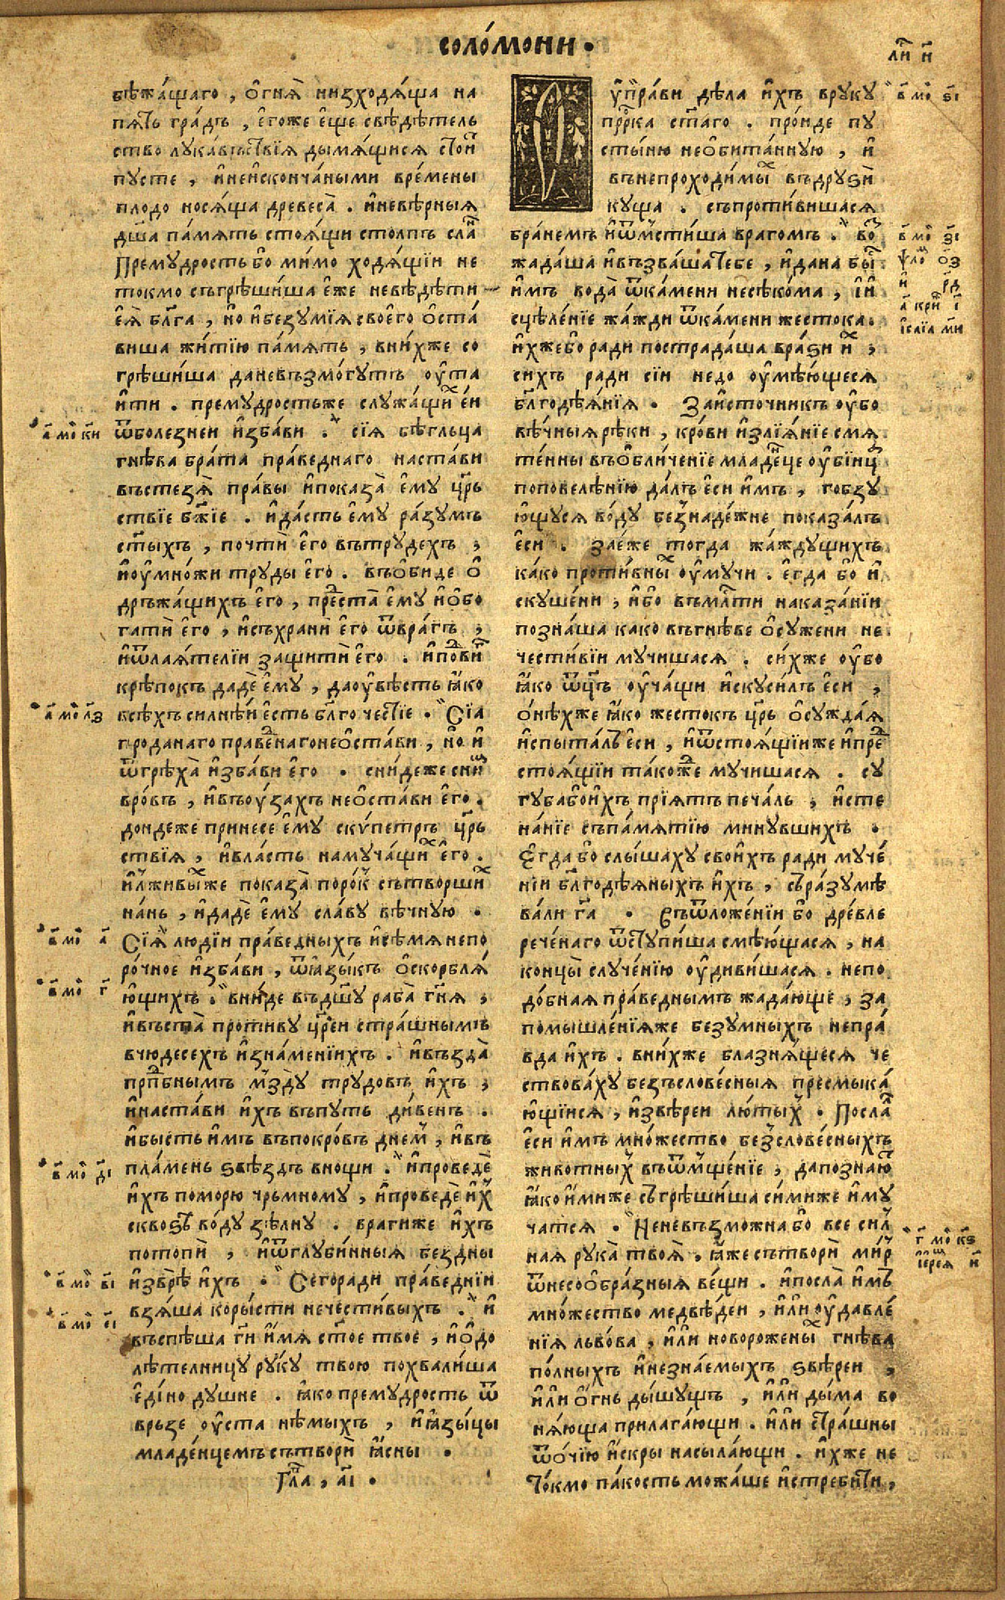 соло́мони ·
ли҃ н҃
бѣжа́щаго , ѻ҆гнѧ̀ низходѧ́ща на
пѧ́ть гра́дъ , є҆го́же є҆ще свѣдѣтель
ство лука́въствїѧ дымѧ́щисѧ стои҆̀
пусте , и҆неискончаными вре́мены
плодо носѧ́ща древеса̀ . и҆неве́рныѧ
дш҃а па́мѧть стоѧ́щи столпъ сла́н
Премꙋдрость бо ми́мо ходѧ́щїи не
токмо съгрѣши́ша є҆же невѣ́дѣти
є҆ѧ̀ бл҃га , но и҆безꙋмїѧ своего̀ ѻ҆ста́
виша жи́тїю па́мѧть , вни́хже со
грѣши́ша даневъзмо́гꙋтъ ᲂу҆та
и҆ти . премꙋдростьже слꙋжа́щи́х є҆и
ѿболезнеи и҆зба́ви . сїѧ̀ бѣгльца
а҃ мо҃ к҃и
гнѣ́ва бра́та пра́веднаго наста́ви
въстезѧ̀ пра́вы и҆показа̀ є҆мꙋ цр҃ь
ствїе бж҃їе . и҆да́сть є҆мꙋ ра́зꙋмъ
ст҃ыхъ , почтѝ є҆го̀ вътрꙋдехъ ,
и҆ᲂу҆мно́жи трꙋды̀ є҆го̀ . въѻ҆биде ѻ҆
дръжа́щихъ є҆го̀ , преста̀ є҆мꙋ и҆ѻ҆бо
гатѝ є҆го̀ , и҆съхранѝ є҆го̀ ѿвра́гъ ,
и҆ѿлаѧ́телїи защитѝ є҆го̀ . и҆по́двиг
крѣпокъ дадѐ є҆мꙋ , даᲂу҆вѣсть ꙗ҆ко
всѣхъ силнѣ́и є҆сть бл҃го че́стїе . Сїѧ
а҃ мо҃ л҃з
проданаго праве́днагонеѻ҆ста́ви , но и҆
ѿгрѣха̀ и҆зба́ви є҆го̀ . сни́деже сни́м
вро́въ , и҆въᲂу҆́захъ неѻ҆ста́ви є҆го̀ .
дондеже принесе є҆мꙋ скѵ́петръ цр҃ь
ствїѧ , и҆вла́сть намꙋча́щи́х є҆го̀ .
и҆лжи́выхже показа̀ поро́к сътворши́х
на́нь , и҆дадѐ є҆мꙋ сла́вꙋ вѣ́чнꙋю .
Сїѧ̀ лю́дїи пра́ведныхъ и҆сѣмѧ непо
в҃ мо҃ а҃
ро́чное и҆зба́ви , ѿꙗ҆зы́къ ѻ҆скорблѧ́
ю҆щихъ . вни́де въдш҃ꙋ раба̀ гн҃ѧ ,
в҃ мо҃ г҃
и҆въста̀ проти́вꙋ цр҃еи стра́шнымъ
вчюдесехъ и҆зна́менїихъ . и҆въздà
прп҃бнымъ мъздꙋ трꙋдовъ и҆хъ ,
и҆наста́ви и҆хъ въпꙋть ди́венъ .
и҆бы́сть и҆мъ въпокро́въ дне́м , и҆въ
пла́мень ѕвѣ́здъ вно́щи . и҆проведѐ
в҃ мо҃ д҃і
и҆хъ поморю чръмномꙋ , и҆проведѐ и҆х
сквоѕѣ́ во́дꙋ ѕѣ́лнꙋ . врагиже и҆хъ
потопѝ , и҆ѿглꙋби́нныѧ бездны
и҆звръ́же и҆хъ . Сегоради пра́веднїи
в҃ мо҃ в҃і
взѧ́ша коры́сти нечести́выхъ . и҆
в҃ мо҃ є҃і
въспѣ́ша гн҃и и҆́мѧ ст҃ое твое , и҆ѻ҆до
лѣ́телницꙋ рꙋ́кꙋ твою похвали́ша
є҆ди́но дꙋшне . ꙗ҆ко премꙋдрость ѿ
връзе ᲂу҆ста нѣмы́хъ , и҆ꙗ҆зы́цы
младе́нцемъ сътворѝ ꙗ҆сны .
Гл҃а , а҃і .
И ᲂу҆пра́ви дѣ́ла и҆хъ врꙋкꙋ
в҃ мо҃ ѕ҃і
прр҃ка ст҃аго . про́иде пꙋ
сты́ню неѻ҆бита́ннꙋю , и҆
въ непроходи́мых въдрꙋѕѝ
кꙋща . съпроти́вишасѧ
бра́немъ и҆ѿмсти́ша враго́мъ . во́з
в҃ мо҃ з҃і
жада́ша и҆възва́шатебе , и҆дана бы́
ѱло҃ ѻ҃з
и҆мъ вода̀ ѿка́мени несѣ́кома , и҆и
и҆ р҃д
сцѣле́нїе жа́жди ѿка́мени жестока .
а҃ кри́ і҃
и҆хжебо ради пострада́ша вра́ѕи и҆́х ,
і҆са́їа м҃и
си́хъ ради сїи недо ᲂу҆мѣ́ющесѧ
бл҃годѣѧ́нїѧ . Заи҆сто́чникъ ᲂу҆бо
вѣ́чныѧ рѣки , кро́ви и҆злїѧ́нїе смѧ
те́нны въѻ҆бличе́нїе младе́нце ᲂу҆бі́иц
поповелѣ́нїю да́лъ є҆си и҆мъ , гобзꙋ
ю҆щꙋсѧ во́дꙋ безнаде́жне показа́лъ
є҆си . зае́же тогда жа́ждꙋщихъ
ка́ко проти́вных ᲂу҆мꙋчи . є҆гда бо и҆
скꙋше́ни , и҆бо въмл҃ти наказа́нїи
позна́ша како въгнѣве ѻ҆сꙋжени не
чести́вїи мꙋчишасѧ . си́хже ᲂу҆бо
ꙗ҆ко ѿц҃ъ ᲂу҆ча́щи и҆скꙋси́лъ є҆си ,
ѻ҆нѣхже ꙗ҆ко жестокъ цр҃ь ѻ҆сꙋжда́ѧ
и҆спыта́лъ є҆си , и҆ѿстоѧ́щїиже и҆пре́д
стоѧ́щїи та́коже мꙋчишасѧ . сꙋ
гꙋбабои҆хъ прїѧ́тъ печа́ль , и҆сте
на́нїе съпа́мѧтїю минꙋвшихъ .
Є҆гда бо слы́шахꙋ свои́хъ ради мꙋче́
нїи бл҃годѣѧныхъ и҆хъ , съразꙋмѣ
ва́ли гд҃а . Въѿложе́нїи бо дре́вле
рече́наго ѿстꙋпи́ша смѣю́щасѧ , на
концы̀ слꙋче́нїю ᲂу҆диви́шасѧ . непо
до́бнаѧ пра́веднымъ жада́юще , за
помышле́нїѧже безꙋмныхъ непра́
вда и҆хъ . вни́хже блазнѧ́щесѧ че
ствова́хꙋ безъслове́сныѧ пресмыка́
ю҆щїисѧ , и҆звѣреи лю́тых . Посла́
є҆си и҆мъ мно́жество безслове́сныхъ
живо́тных въѿмще́нїе , дапозна́ют
ꙗ҆ко и҆́миже съгрѣши́ша си́миже и҆мꙋ
чатсѧ . Неневъзмо́жна бо все си́л
г҃ мо҃ к҃ѕ
наѧ рꙋка̀ твоѧ̀ , ꙗ҆же сътворѝ ми́р
і҆ере́ѧ н҃
ѿнесоѻ҆бра́зныѧ ве́щи . и҆посла̀ и҆мъ
мно́жество медвѣ́деи , и҆лѝ ᲂу҆давле́
нїѧ льво́ва , и҆лѝ новорожены́х гнѣ́ва
по́лныхъ и҆незна́емыхъ ѕвѣ́реи ,
и҆лѝ ѻ҆́гнь ды́шꙋщъ , и҆лѝ ды́ма во
нѧ́юща прилага́ющи . и҆лѝ стра́шны
ѿѻ҆чїю и҆скры насыла́ющи . и҆хже не
то́кмо па́кость можа́ше и҆стребити ,